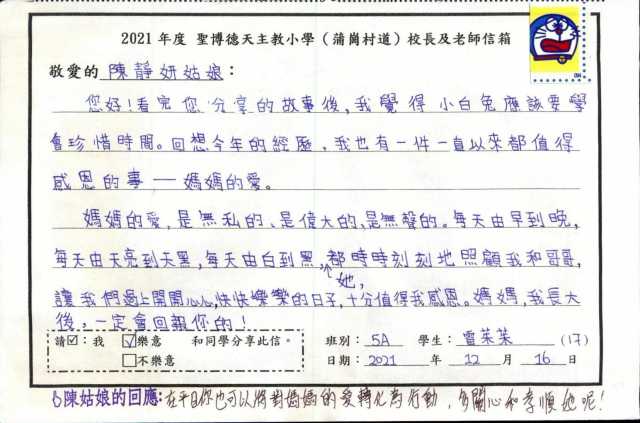 2021 年度 聖博德天主教小學（蒲崗村道）校長及老師信箱
敬愛的 陳靜妍姑娘：
您好！看完您分享的故事後，我覺得小白兔應該要學
會珍惜時間。回想今年的經歷，我也有一件一直以來都值得
感恩的事——媽媽的愛。
媽媽的愛，是無私的、是偉大的，是無聲的。每天由早到晚，
每天由天亮到天黑，每天由白到黑，她，都時時刻刻地照顧我和哥哥，
讓我們過上開開心心，快快樂樂的日子，十分值得我感恩。媽媽，我長大
後，一定會回報你的！
請☑：我 ☑樂意 和同學分享此信。 班別：5A 學生：雷茱茱 (17)
☐不樂意 日期：2021 年 12 月 16 日
陳姑娘的回應：在平日你也可以將對媽媽的愛轉化為行動，多關心和孝順她呢！